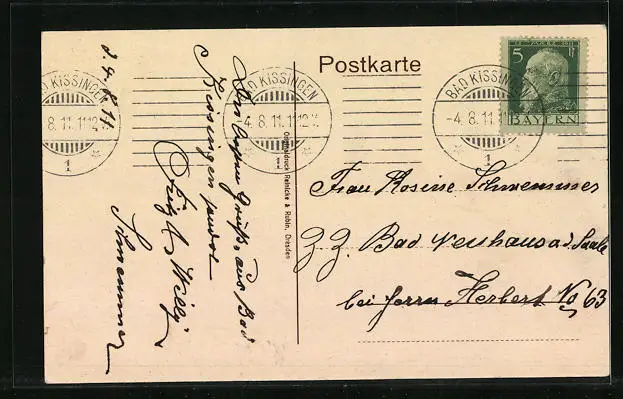 d. 4. 8. 11
Bad Kissingen sendet
Fritz & Willy
Schwemmer
Originaldruck Reinicke & Rubin, Dresden
Postkarte
BAD KISSINGEN
-4.8.11.
1
BAD KISSINGEN
4.8.11.
1
BAD KISSINGEN
-4.8.11.
1
12. MÄRZ 1911
5 Pf
BAYERN
Frau Rosine Schwemmer
z. Z. Bad Neuhaus a/d. Saale
bei Herrn Herbert No 63